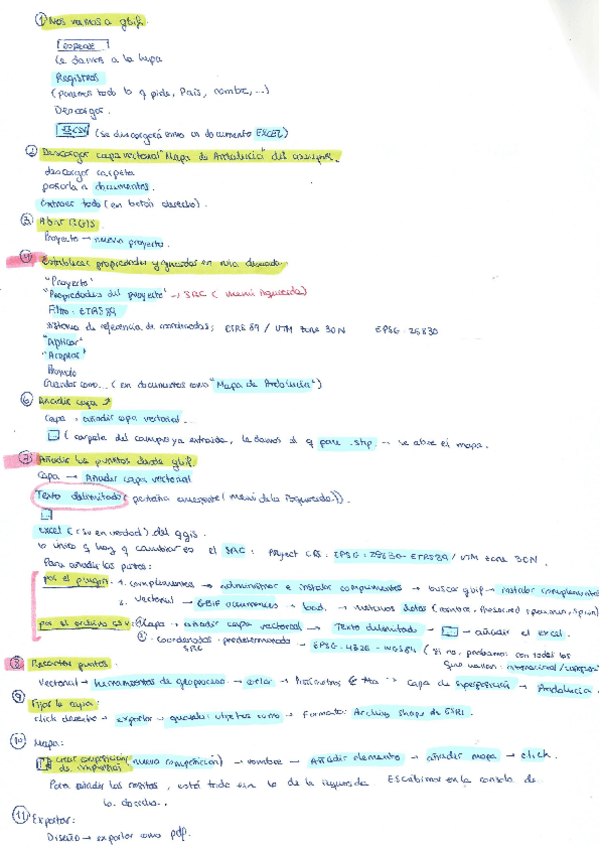 ① Nos vamos a gbif.
[especie]
Le damos a la lupa
Registros
(ponemos todo lo q pide, País, nombre, ...)
Descargar.
(se descargará como un documento EXCEL)
② Descargar capa vectorial "Mapa de Andalucía" del campus.
descargar carpeta
pasarla a documentos.
Extraer todo (en botón derecho).
③ Abrir QGIS
Proyecto → nuevo proyecto.
Establecer propiedades y guardar en
"Proyecto"
"Propiedades del proyecto" → SRC (menú izquierda)
Filtro: ETRS89
sistema de referencia de coordenadas: ETRS89 / UTM zone 30N EPSG: 25830
"Aplicar"
"Aceptar"
Proyecto
Guardar como... (en documentos como "Mapa de Andalucía")
⑥ Añadir capa
Capa → añadir capa vectorial.
(carpeta del campus ya extraída, le damos al q pone .shp → se abre el mapa.
⑦ Añadir los puntos desde gbif.
Capa → Añadir capa vectorial
Texto delimitado (pestaña emergente (menú de la izquierda)).
excel (csv en verdad) del qgis.
lo único q hay q cambiar es el SRC: Project CRS: EPSG: 25830 - ETRS89 / UTM zone 30N.
Para añadir los puntos:
por el plugin: 1. complementos → administrar e instalar complementos → buscar gbif → instalar complemento
2. Vectorial → GBIF occurrences → load. → metemos datos (nombre,
por el archivo csv: ① Capa → añadir capa vectorial → Texto delimitado → añadir el excel.
②. Coordenadas predeterminado → EPSG: 4326 - WGS84 (si no, probamos con todos los
SRC
⑧ Recortar puntos.
Vectorial → herramientas de geoproceso → cortar → → Capa de superposición → Andalucía.
⑨ Fijar la capa:
click derecho → exportar → guardar objetos como → Formato: Archivo shape de ESRI.
⑩ Mapa:
crear composición (nueva composición) → nombre → Añadir elemento → añadir mapa → click.
de impresión
Para añadir los, está todo en lo de la izquierda Escribimos en la consola de
la derecha.
⑪ Exportar:
Diseño → exportar como pdf.